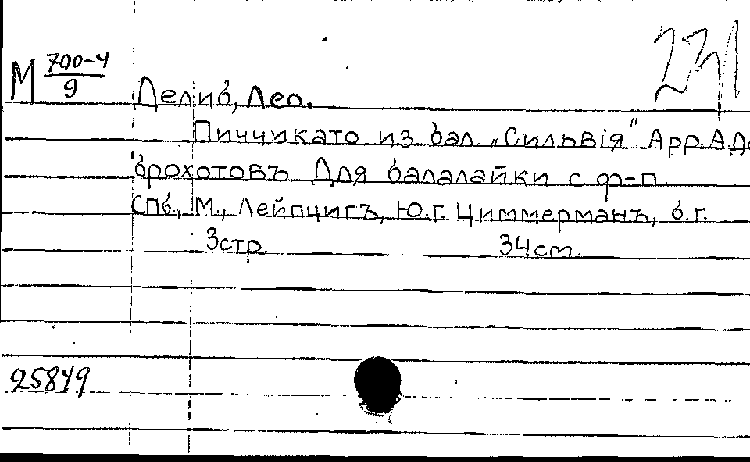 М 700-4/9
231
Делиб, Лео.
Пиччикато из бал. „Сильвiя" Арр. А. До
брохотовъ Для балалайки с ф-п
СПб., М., Лейпциг, Ю.Г. Циммерманъ, б.г.
3стр 34cm.
25849